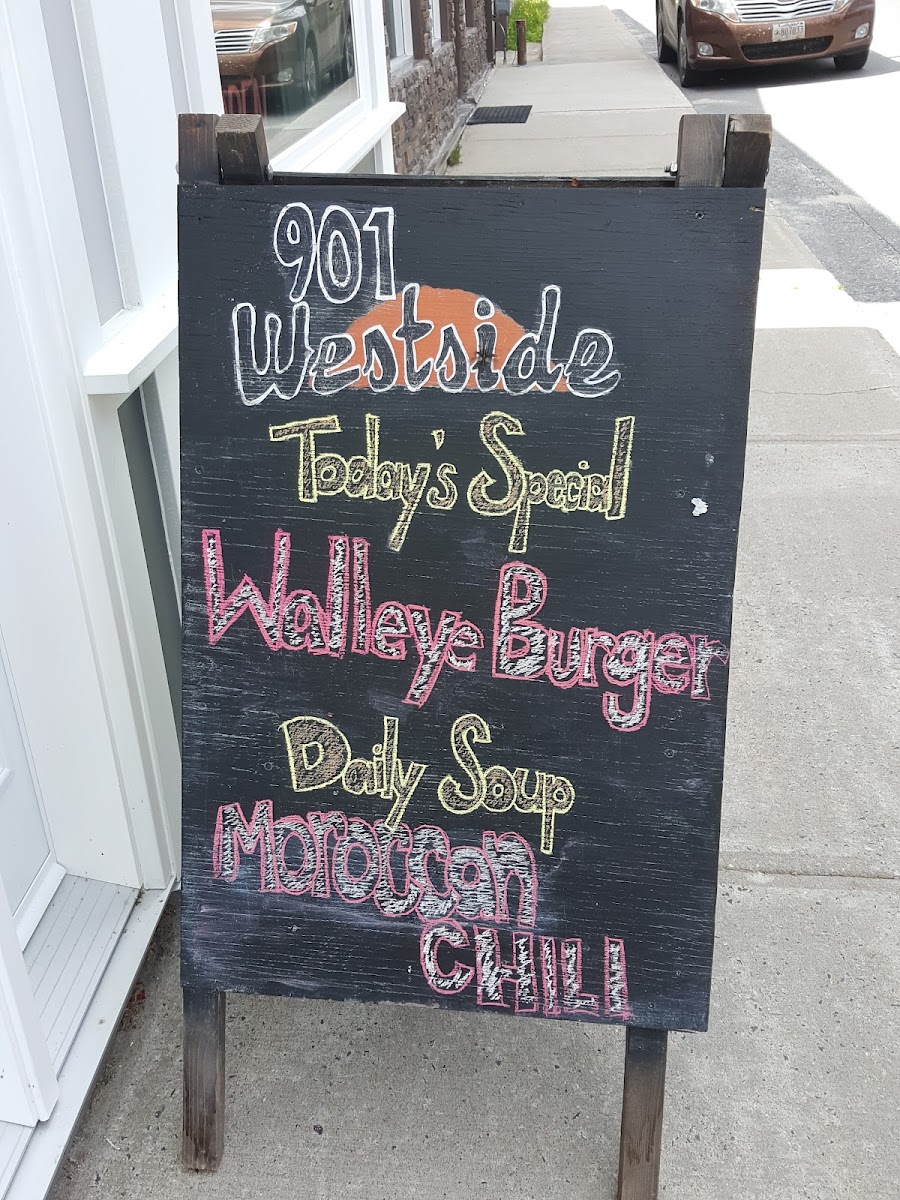 901
Westside
Today's Special
Walleye Burger
Daily Soup
Moroccan
CHILI